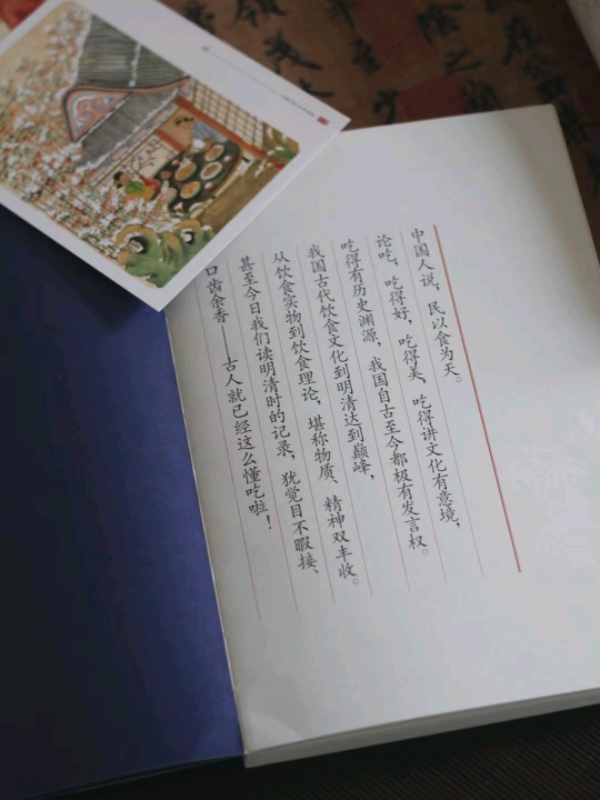 中国人说，民以食为天。
论吃，吃得好，吃得美，吃得讲文化有意境，
吃得有历史渊源，我国自古至今都极有发言权。
我国古代饮食文化到明清达到巅峰，
从饮食实物到饮食理论，堪称物质、精神双丰收。
甚至今日我们读明清时的记录，犹觉目不暇接、
口齿余香——古人就已经这么懂吃啦！